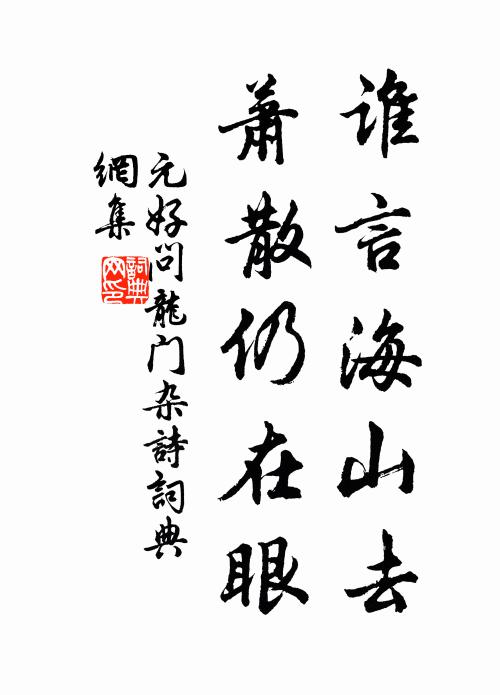 谁言海山去
萧散仍在眼
元好问龍门杂詩詞典
網集
詞典
网印